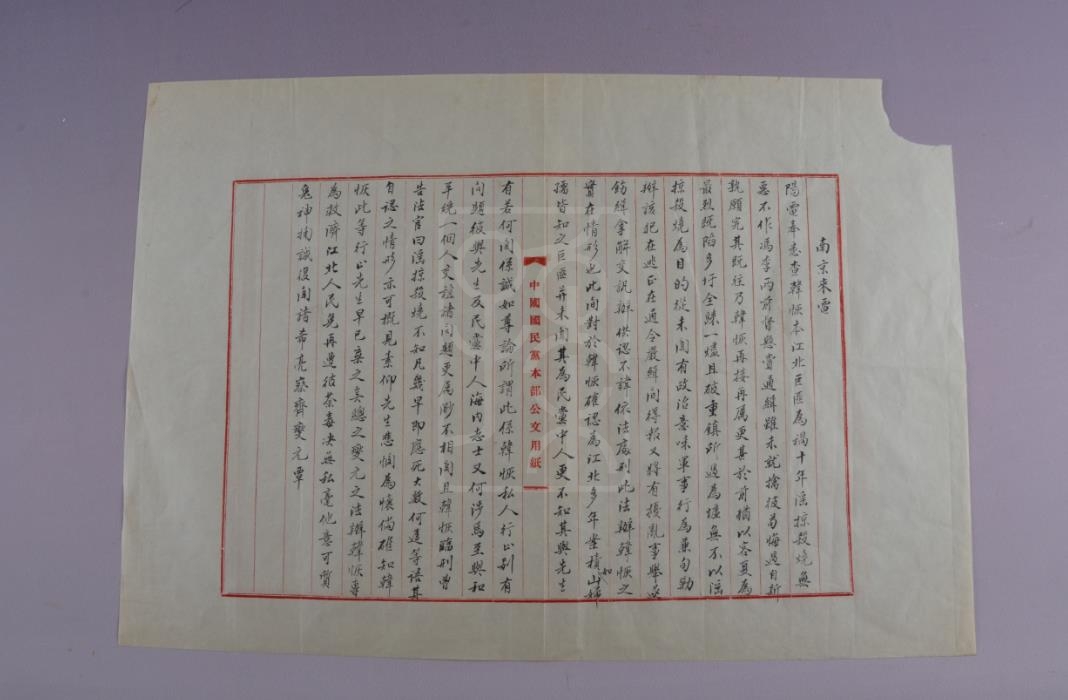 南京來電
陽電奉悉查韓恢本江北巨匪為禍十年滛掠殺燒無
惡不作馮李兩前督懸賞通緝雖未就擒彼苟悔過自新
孰願究其既往乃韓恢再接再厲更甚於前猶以客夏為
最烈既陷多圩全賕一爐且破重鎮所過為墟無不以滛
掠殺燒為目的從未聞有政治意味軍事行為兼旬勦
辦該犯在逃正在通令嚴緝間得報又將有擾亂事舉安
飭緝拿解交訊辦供認不諱依法處刑此法辦韓恢之
實在情形也此間對於韓恢確認為江北多年案積如山婦
孺皆知之巨匪并未聞其為民黨中人更不知其與先生
中國國民黨本部公文用紙
有若何關係誠如尊論所謂此係韓恢私人行止別有
問題後與先生及民黨中人海內志士又何涉焉至與和
平統一個人交誼諸問題更屬渺不相關且韓恢臨刑曾
告法官曰滛掠殺燒不知凡幾早即應死大數何逃等語其
自認之情形亦可概見素仰先生悲憫為懷倘確知韓
恢此等行止先生早已棄之矣總之燮元之法辦韓恢專
為救濟江北人民免再遭彼荼毒決無私毫他意可質
鬼神掬誠復聞諸希亮察齊燮元覃